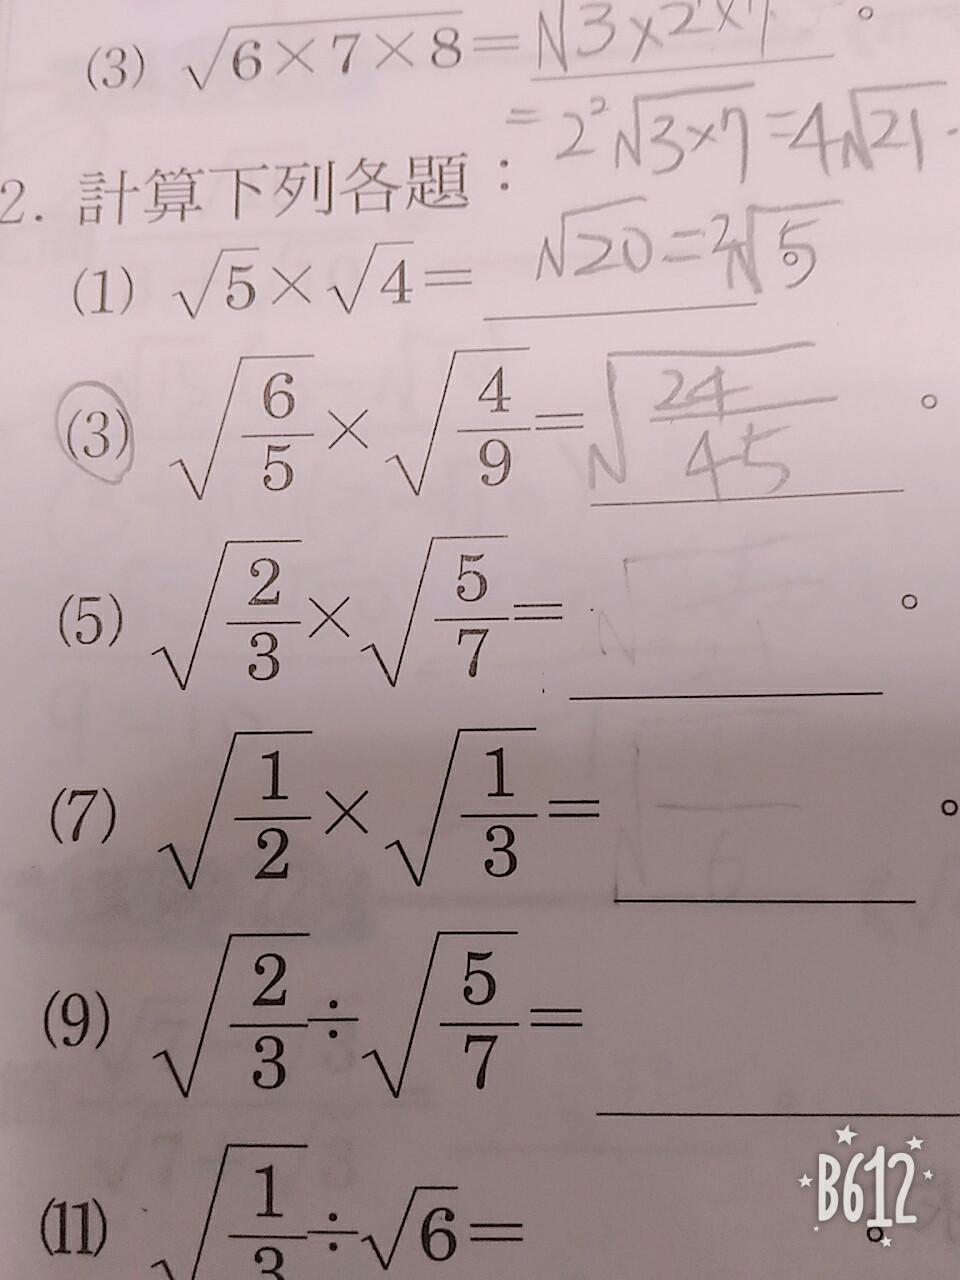 (3) √(6×7×8) = √(3×2×7)
= 2²√(3×7) = 4√21
2. 計算下列各題：
(1) √5 × √4 = √20 = 2√5 。
(3) √(6/5) × √(4/9) = √(24/45) 。
(5) √(2/3) × √(5/7) = 。
(7) √(1/2) × √(1/3) = 。
(9) √(2/3) ÷ √(5/7) =
(11) √(1/3) ÷ √6 = 。
B612